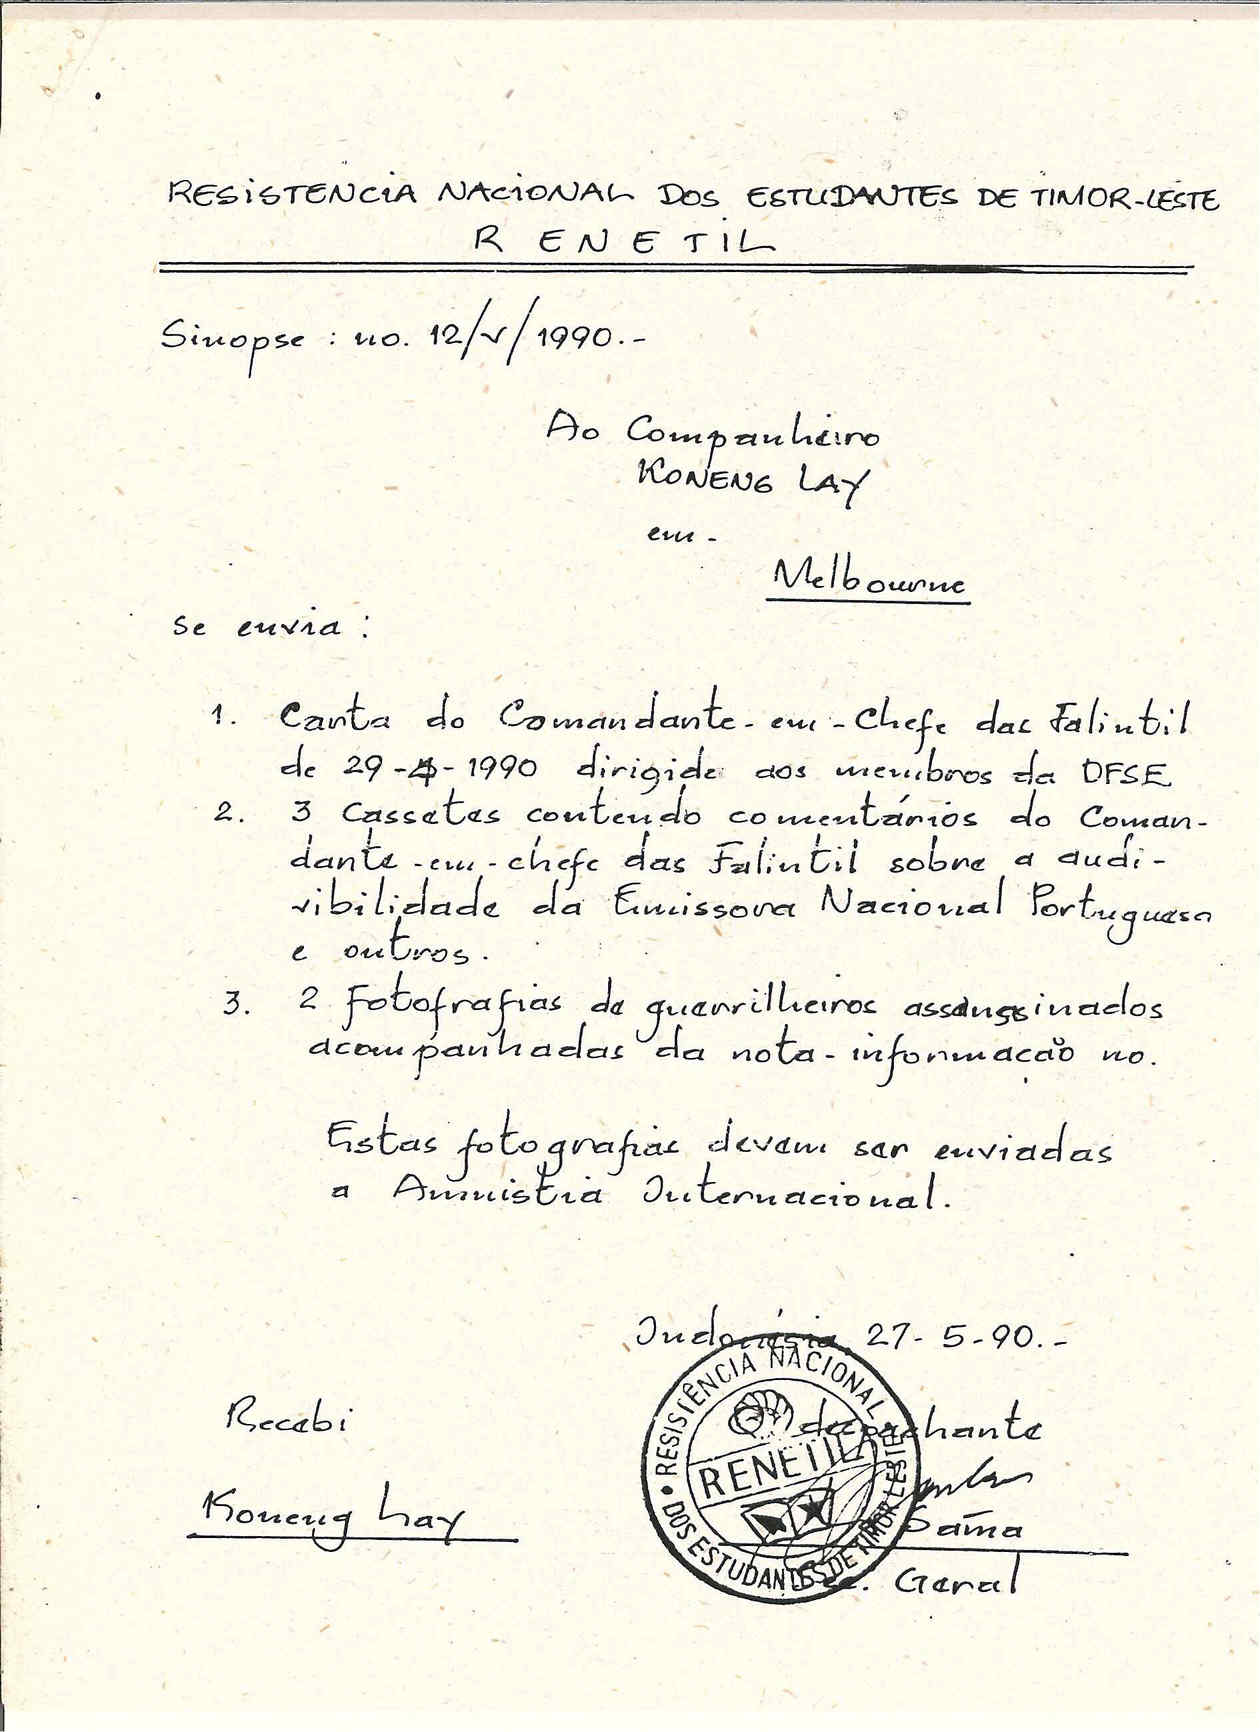 RESISTENCIA NACIONAL DOS ESTUDANTES DE TIMOR-LESTE
R ENETIL
Sinopse : no. 12/V/1990.-
Ao Companheiro
KONENG LAY
em -
Melbourne
se envia :
1. Carta do Comandante-em-Chefe das Falintil
de 29-4-1990 dirigida aos membros da DFSE
2. 3 Cassetes contendo comentários do Coman-
dante-em-chefe das Falintil sobre a audi-
vibilidade da Emissora Nacional Portuguesa
e outros.
3. 2 Fotofrafias de guerrilheiros assassinados
acompanhadas da nota-informação no.
Estas fotografias devem ser enviadas
a Amnistia Internacional.
Indonésia, 27-5-90.-
Recebi
despachante
Koneng Lay
Sama
Geral
RESISTÊNCIA NACIONAL
DOS ESTUDANTES DE TIMOR LESTE
RENETIL